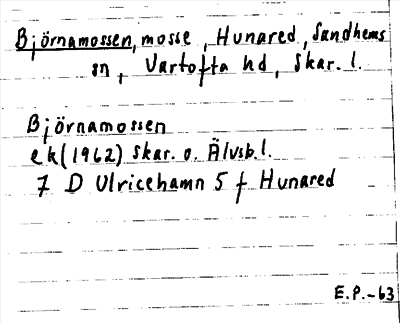 Björnamossen, mosse, Hunared, Sandhems
sn, Vartofta hd, Skar. l.
Björnamossen
ek (1962) Skar. o. Älvsb. l.
7 D Ulricehamn 5 f Hunared
E.P.-63